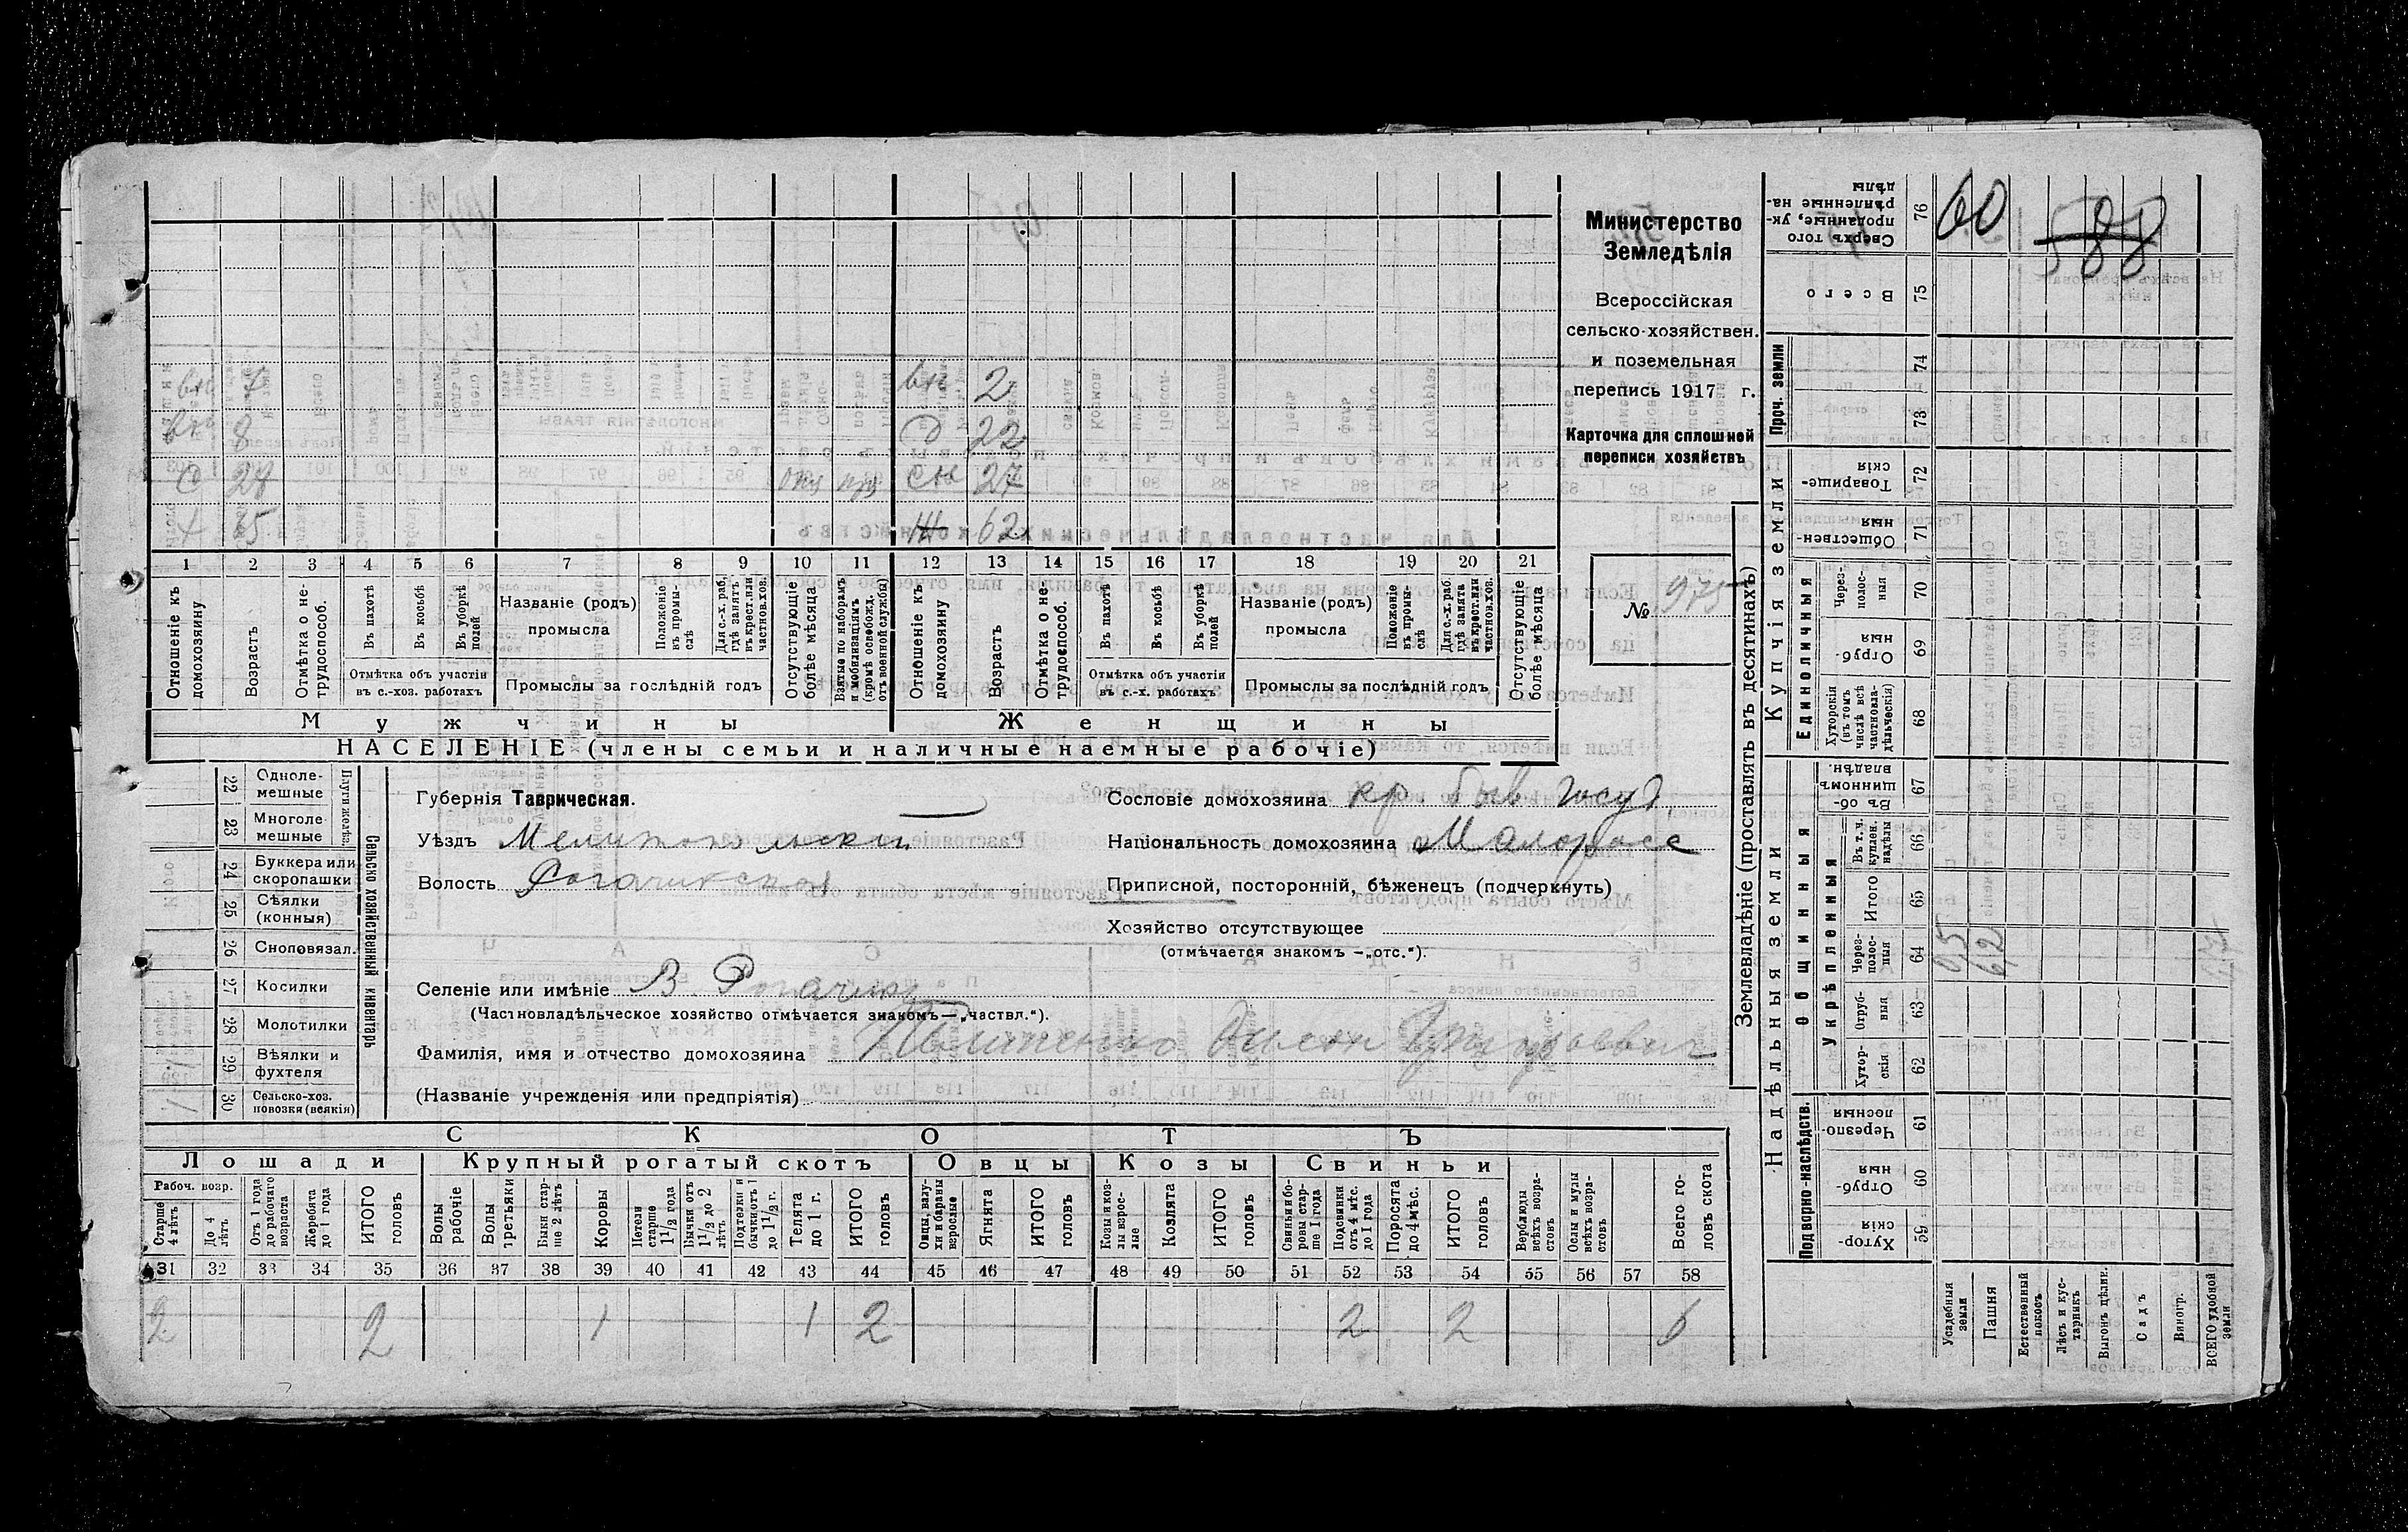 Министерство
Земледѣлія
Всероссійская
сельско-хозяйствен.
и поземельная
перепись 1917 г.
Карточка для сплошной
переписи хозяйствъ
№ 975
60
588
вн 7 вн 2
вн 8 С 22
С 24 отс сн 27
х 65 Ж 62
1 2 3 4 5 6 7 8 9 10 11 12 13 14 15 16 17 18 19 20 21
Отношеніе къ домохозяину
Возрастъ
Отмѣтка о не-трудоспособ.
Въ пахотѣ
Въ косьбѣ
Въ уборкѣ полей
Отмѣтка объ участіи
въ с.-хоз. работахъ
Названіе (родъ)
промысла
Положеніе въ промы-слѣ
Для с.-х. раб. гдѣ занятъ въ крест. или частнов. хоз.
Промыслы за послѣдній годъ
Отсутствующіе болѣе мѣсяца
Взятые по наборамъ и мобилизаціямъ (кромѣ освобожд. отъ военной службы)
Отношеніе къ домохозяину
Возрастъ
Отмѣтка о не-трудоспособ.
Въ пахотѣ
Въ косьбѣ
Въ уборкѣ полей
Отмѣтка объ участіи
въ с.-х. работахъ
Названіе (родъ)
промысла
Положеніе въ промы-слѣ
Для с.-х. раб. гдѣ занята въ крест. или частнов. хоз.
Промыслы за послѣдній годъ
Отсутствующіе болѣе мѣсяца
Мужчины Женщины
НАСЕЛЕНІЕ (члены семьи и наличные наемные рабочіе)
Сельско хозяйственный инвентарь
Плуги желѣз.
22 Одноле-мешные
23 Многоле-мешные
24 Буккера или скоропашки
25 Сѣялки (конныя)
26 Сноповязал.
27 Косилки
28 Молотилки
29 Вѣялки и фухтеля
30 Сельско-хоз. повозки (всякія)
Губернія Таврическая.
Уѣздъ Мелитопольскій
Волость Рогачикская
Сословіе домохозяина кр. быв госуд
Національность домохозяина Малоросс
Приписной, посторонній, бѣженецъ (подчеркнуть)
Хозяйство отсутствующее
(отмѣчается знакомъ —„отс.“).
Селеніе или имѣніе В. Рогачик
(Частновладѣльческое хозяйство отмѣчается знакомъ—„частвл.“).
Фамилія, имя и отчество домохозяина
(Названіе учрежденія или предпріятія)
СКОТЪ
Лошади Крупный рогатый скотъ Овцы Козы Свиньи
Рабоч. возр.
Старше 4 лѣтъ
До 4 лѣтъ
Отъ 1 года до рабочаго возраста
Жеребята до 1 года
ИТОГО головъ
Волы рабочіе
Волы третьяки
Быки стар-ше 2 лѣтъ
Коровы
Нетели старше 1 1/2 года
Бычки отъ 1 1/2 до 2 лѣтъ
Подтелки и бычки отъ 1 до 1 1/2 г.
Телята до 1 г.
ИТОГО головъ
Овцы, валу-хи и бараны взрослые
Ягнята
ИТОГО головъ
Козы и коз-лы взрос-лые
Козлята
ИТОГО головъ
Свиньи и бо-ровы стар-ше 1 года
Подсвинки отъ 4 мѣс. до 1 года
Поросята до 4 мѣс.
ИТОГО головъ
Верблюды всѣхъ возра-стовъ
Ослы и мулы всѣхъ возра-стовъ
Всего го-ловъ скота
31 32 33 34 35 36 37 38 39 40 41 42 43 44 45 46 47 48 49 50 51 52 53 54 55 56 57 58
2 2 1 1 2 2 2 6
Землевладѣніе (проставлять въ десятинахъ)
Купчія земли
Надѣльныя земли
Проч. земли
Единоличныя
Общинныя
Укрѣпленныя
Подворно-наслѣдств.
76 Сверхъ того проданные, ук-рѣпленные на-дѣлы
75 Всего
74
73
72 Товарище-скія
71 Обществен-ныя
70 Через-полос-ныя
69 Отруб-ныя
68 Хуторскія (въ томъ числѣ всѣ частновла-дѣльческія)
67 Въ об-щинномъ владѣн.
66 Въ т. ч. куплен. надѣлы
65 Итого
64 Через-полос-ныя 0,5 6,12
63 Отруб-ныя
62 Хутор-скія
61 Черезпо-лосныя
60 Отруб-ныя
59 Хутор-скія
Усадебныя земли
Пашня
Естественный покосъ
Лѣсъ и кус-тарникъ
Выгонъ цѣлин.
Садъ
Виногр.
ВСЕГО удобной земли